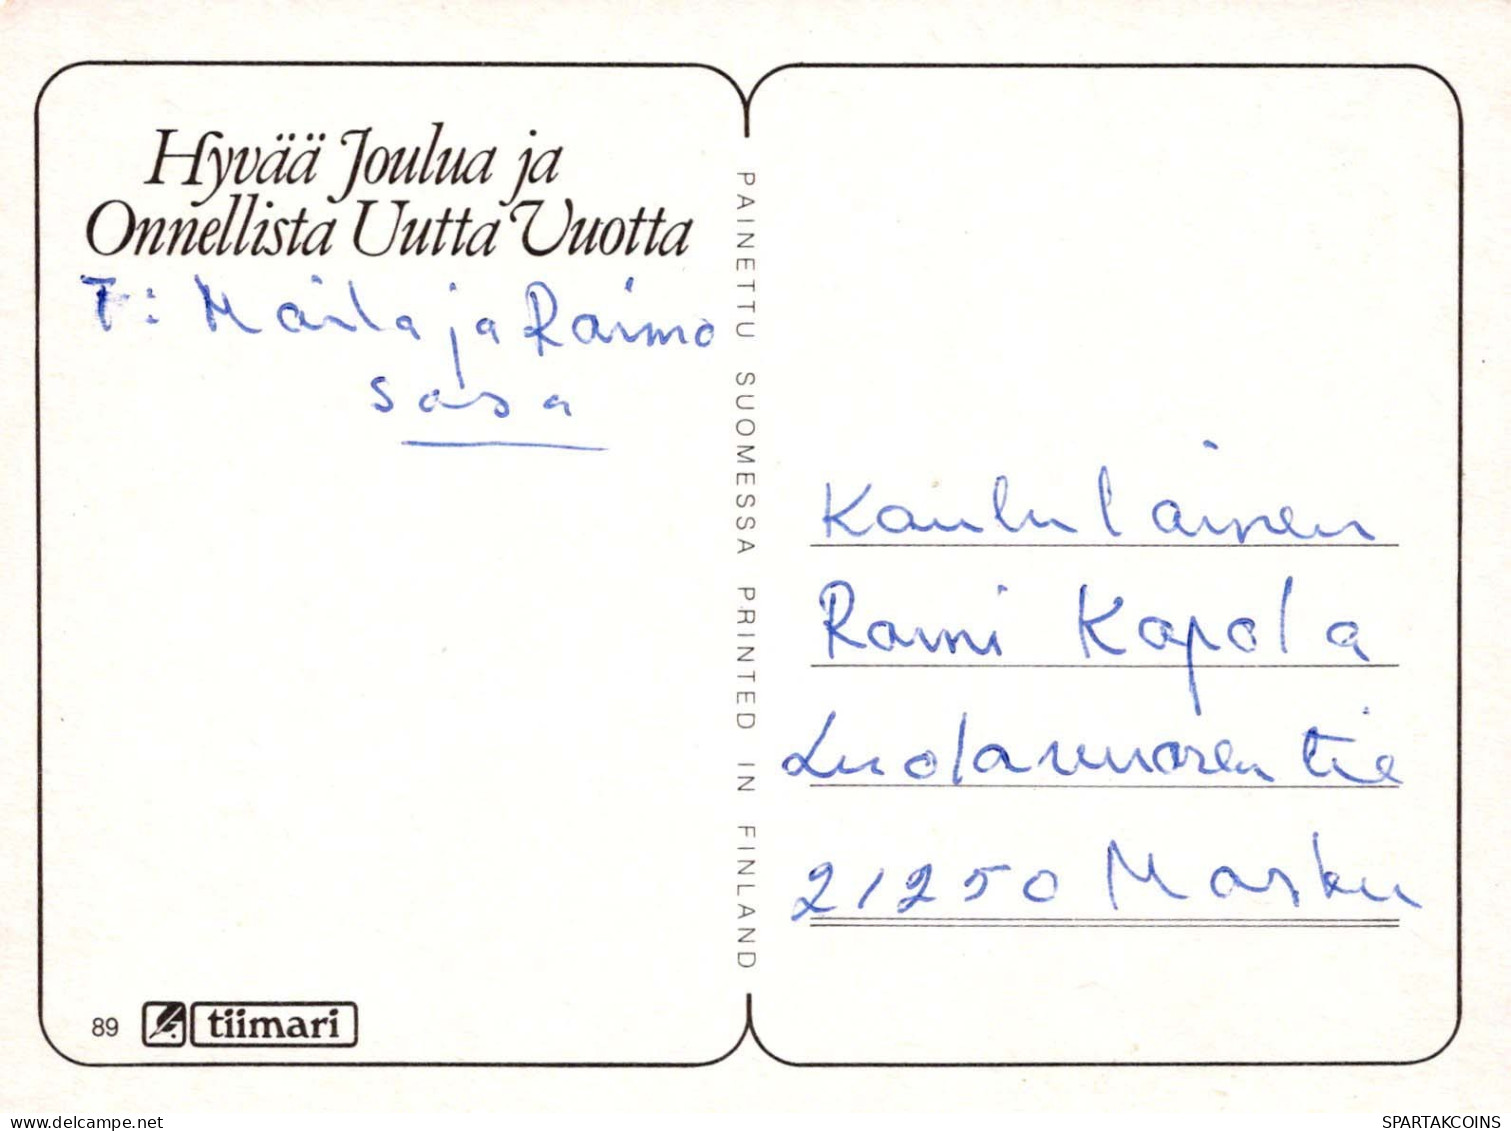 Hyvää Joulua ja
Onnellista Uutta Vuotta
T: Maila ja Raimo
Sasa
PAINETTU SUOMESSA PRINTED IN FINLAND
Kaulu lainen
Raimi Kapola
Luolavuoren tie
21250 Masku
89 tiimari
www.delcampe.net
SPARTAKCOINS